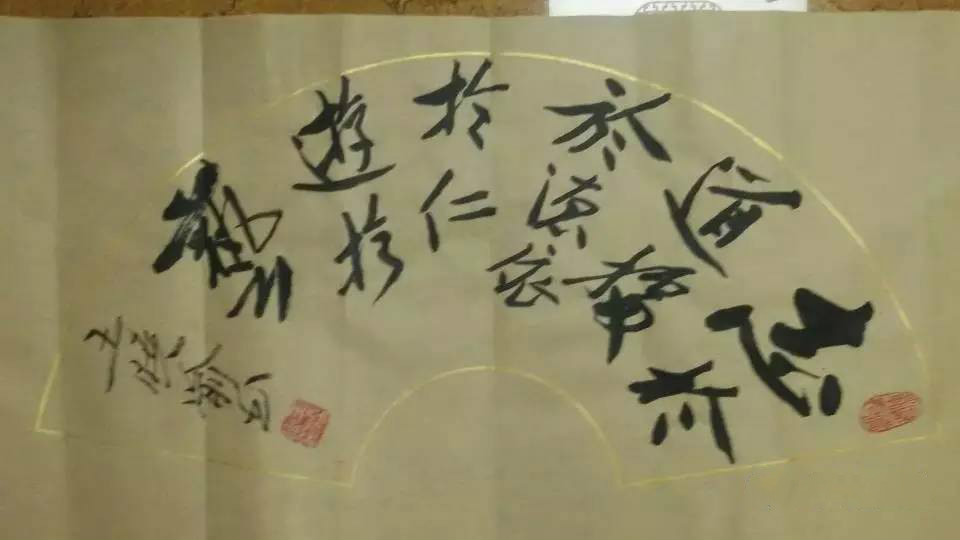 志於
道據
於德依
於仁
遊於
藝